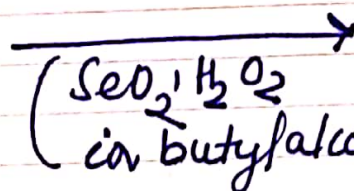 (SeO₂, H₂O₂
in butylalco